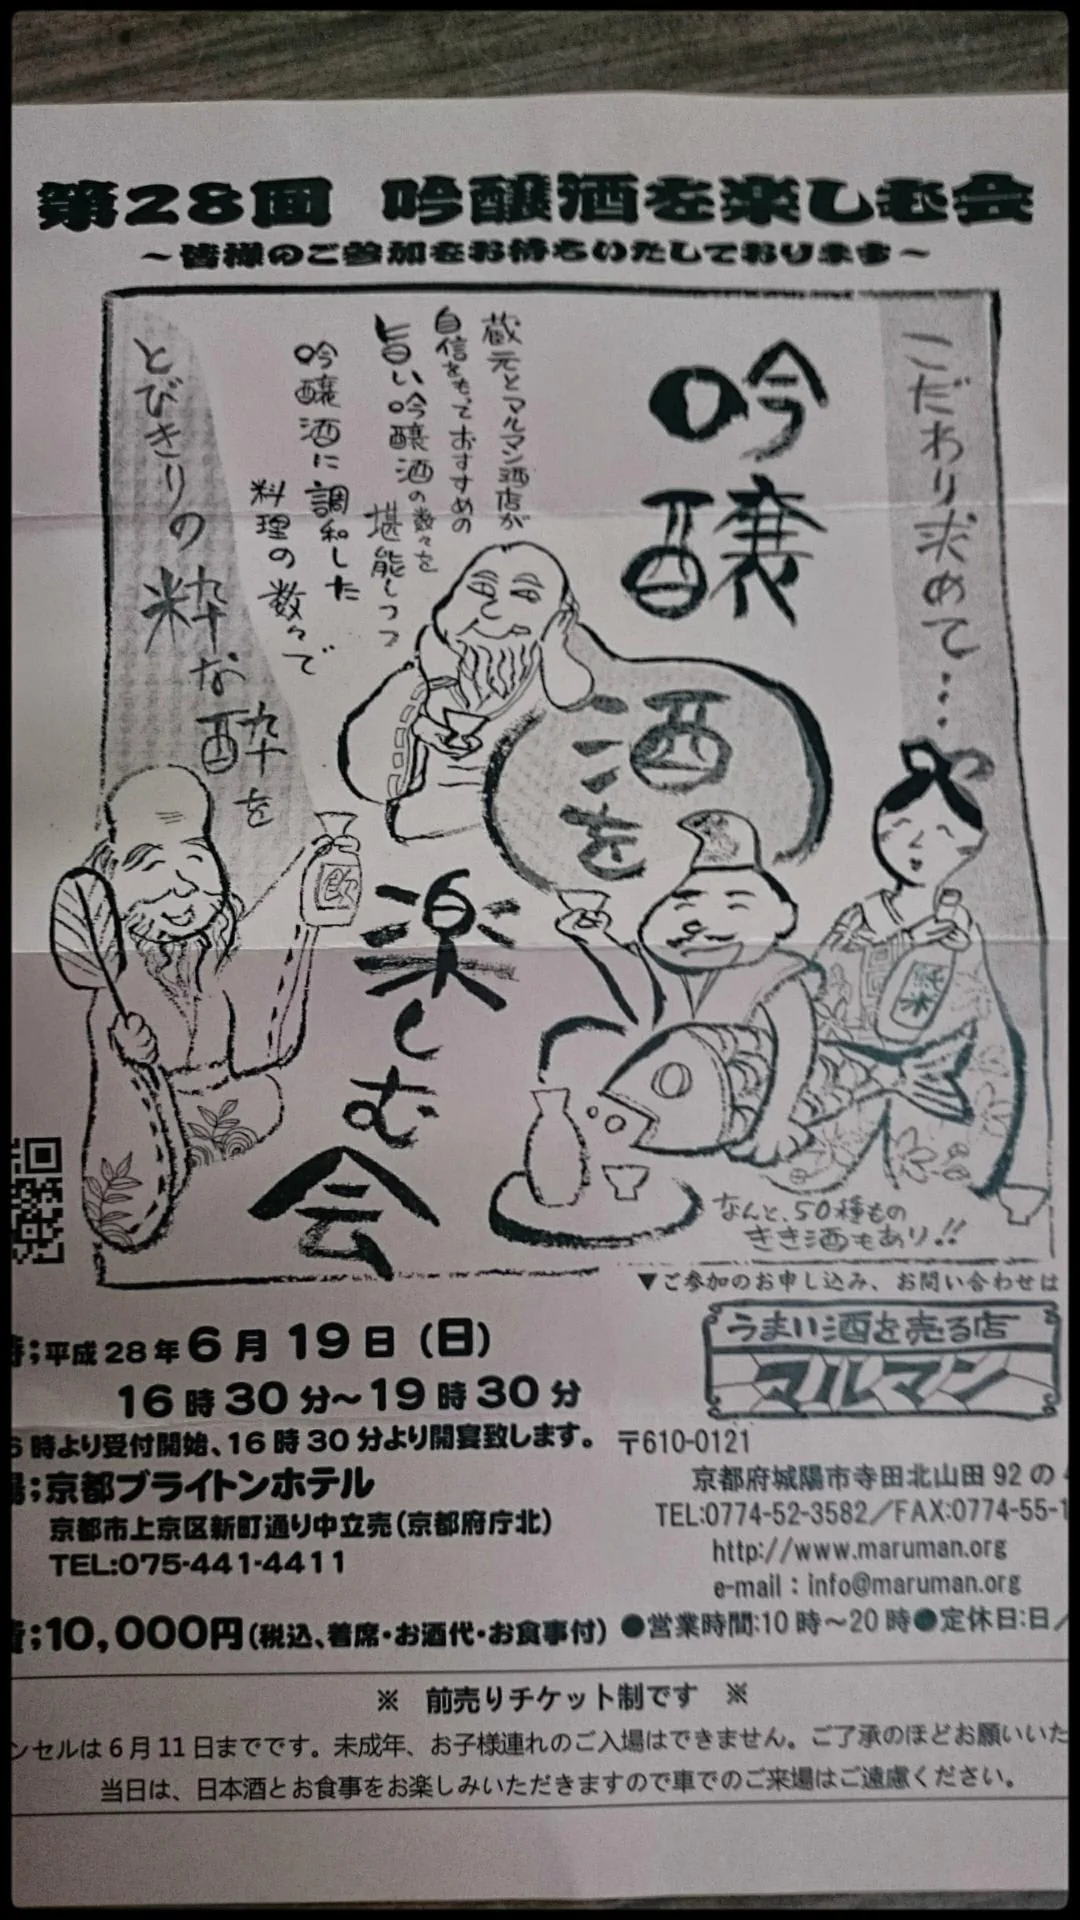 第28回 吟醸酒を楽しむ会
～皆様のご参加をお待ちいたしております～
こだわり求めて…
吟醸
酒を
楽しむ会
蔵元とマルマン酒店が
自信をもっておすすめの
旨い吟醸酒の数々を
堪能しつつ
吟醸酒に調和した
料理の数々で
とびきりの粋な酔を
純米
なんと、50種もの
きき酒もあり!!
▼ご参加のお申し込み、お問い合わせは
うまい酒を売る店
マルマン
;平成28年6月19日(日)
16時30分～19時30分
時より受付開始、16時30分より開宴致します。
;京都ブライトンホテル
京都市上京区新町通り中立売(京都府庁北)
TEL:075-441-4411
;10,000円(税込、着席・お酒代・お食事付)
〒610-0121
京都府城陽市寺田北山田92の
TEL:0774-52-3582／FAX:0774-55-1
http://www.maruman.org
e-mail：info@maruman.org
●営業時間:10時～20時●定休日:日／
※ 前売りチケット制です ※
ンセルは6月11日までです。未成年、お子様連れのご入場はできません。ご了承のほどお願いいた
当日は、日本酒とお食事をお楽しみいただきますので車でのご来場はご遠慮ください。